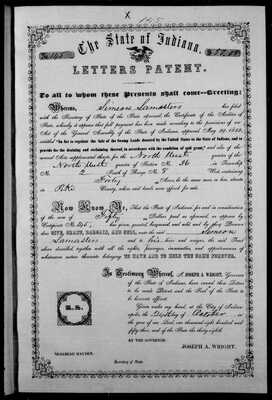 The State of Indiana,
LETTERS PATENT.
To all to whom these Presents shall come--Greeting:
Whereas, Simeon Lamasters has filed
with the Secretary of State of the State aforesaid the Certificate of the Auditor of
State, whereby it appears that full payment has been made according to the provisions of an
Act of the General Assembly of the State of Indiana, approved May 29, 1852,
entitled "An Act to regulate the Sale of the Swamp Lands donated by the United States to the State of Indiana, and to
provide for the draining and reclaiming thereof, in accordance with the condition of said grant," and also of the
several Acts supplemental thereto, for the North West quarter of the
North West quarter of Section No. 36 in Township
No. 2 South of Range No. 8 West, containing
Forty Acres, be the same more or less, situate
in Pike County, within said lands granted for sale.
Now Know Ye, That the State of Indiana, for and in consideration
of the sum of Fifty Dollars paid as aforesaid, as appears by
Certificate No. has given, granted, bargained and sold, and by these Presents
does GIVE, GRANT, BARGAIN, AND SELL, unto the said Simeon
Lamasters and to his heirs and assigns, the said Tract
above described, together with all the rights, privileges, immunities, and appurtenances of
whatsoever nature thereunto belonging, TO HAVE AND TO HOLD THE SAME FOREVER.
In Testimony Whereof, I, JOSEPH A. WRIGHT, Governor
of the State of Indiana, have caused these Letters
to be made Patent, and the Seal of the State to
be hereunto affixed.
Given under my hand, at the City of Indiana-
polis, the day of October in
the year of our Lord, one thousand eight hundred and
fifty three, and of the State the thirty-eighth
L.S.
BY THE GOVERNOR:
JOSEPH A. WRIGHT.
NEHEMIAH HAYDEN,
Secretary of State.